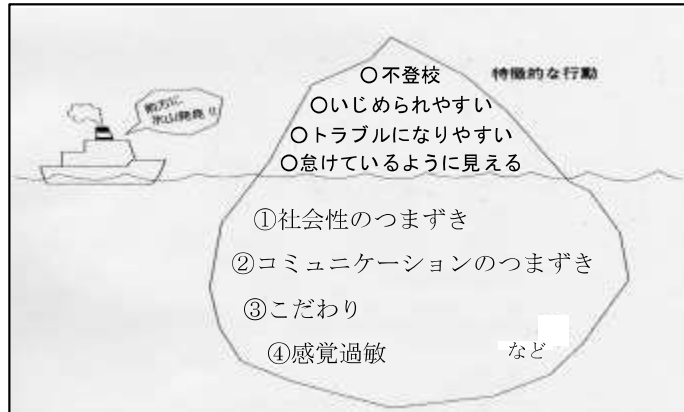 前方に
氷山発見!!
特徴的な行動
○不登校
○いじめられやすい
○トラブルになりやすい
○怠けているように見える
①社会性のつまずき
②コミュニケーションのつまずき
③こだわり
④感覚過敏
など